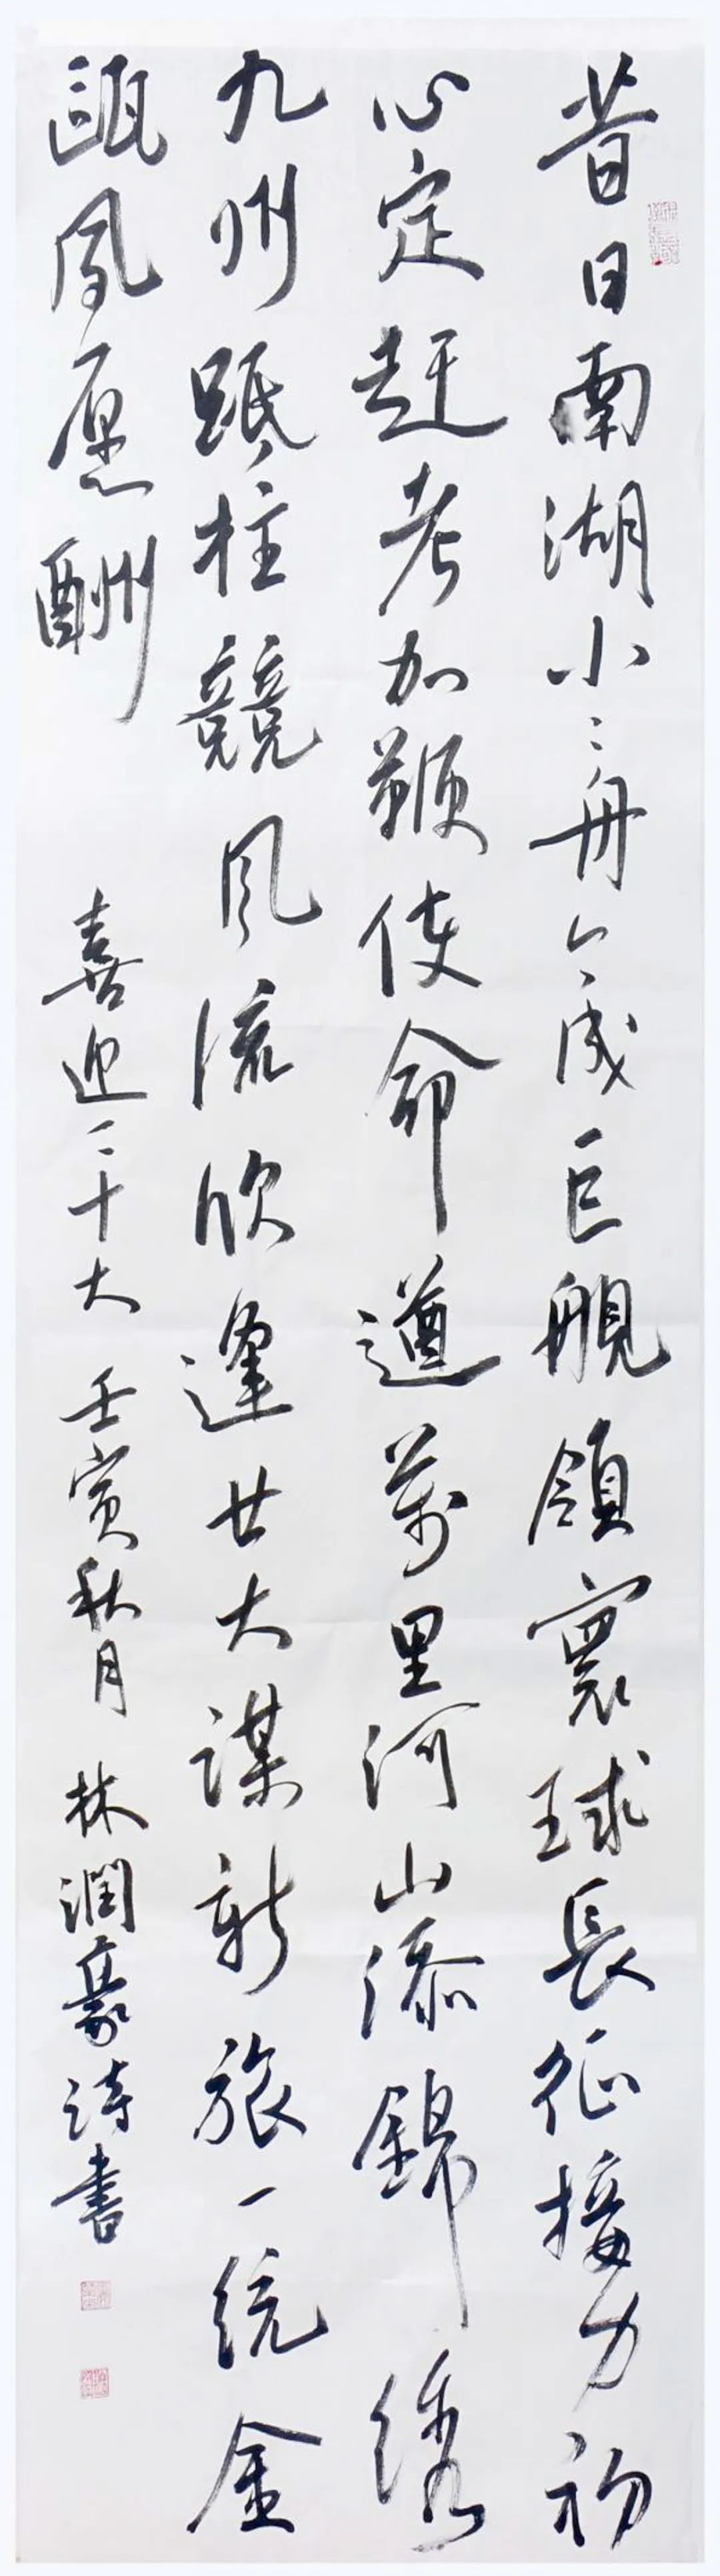 昔日南湖小小舟今成巨舰領寰球長征接力初
心定赶考加鞭使命遒萬里河山添錦绣
九州砥柱競风流欣逢廿大谋新旅一统金
瓯夙愿酬
喜迎二十大 壬寅秋月 林潤豪诗書